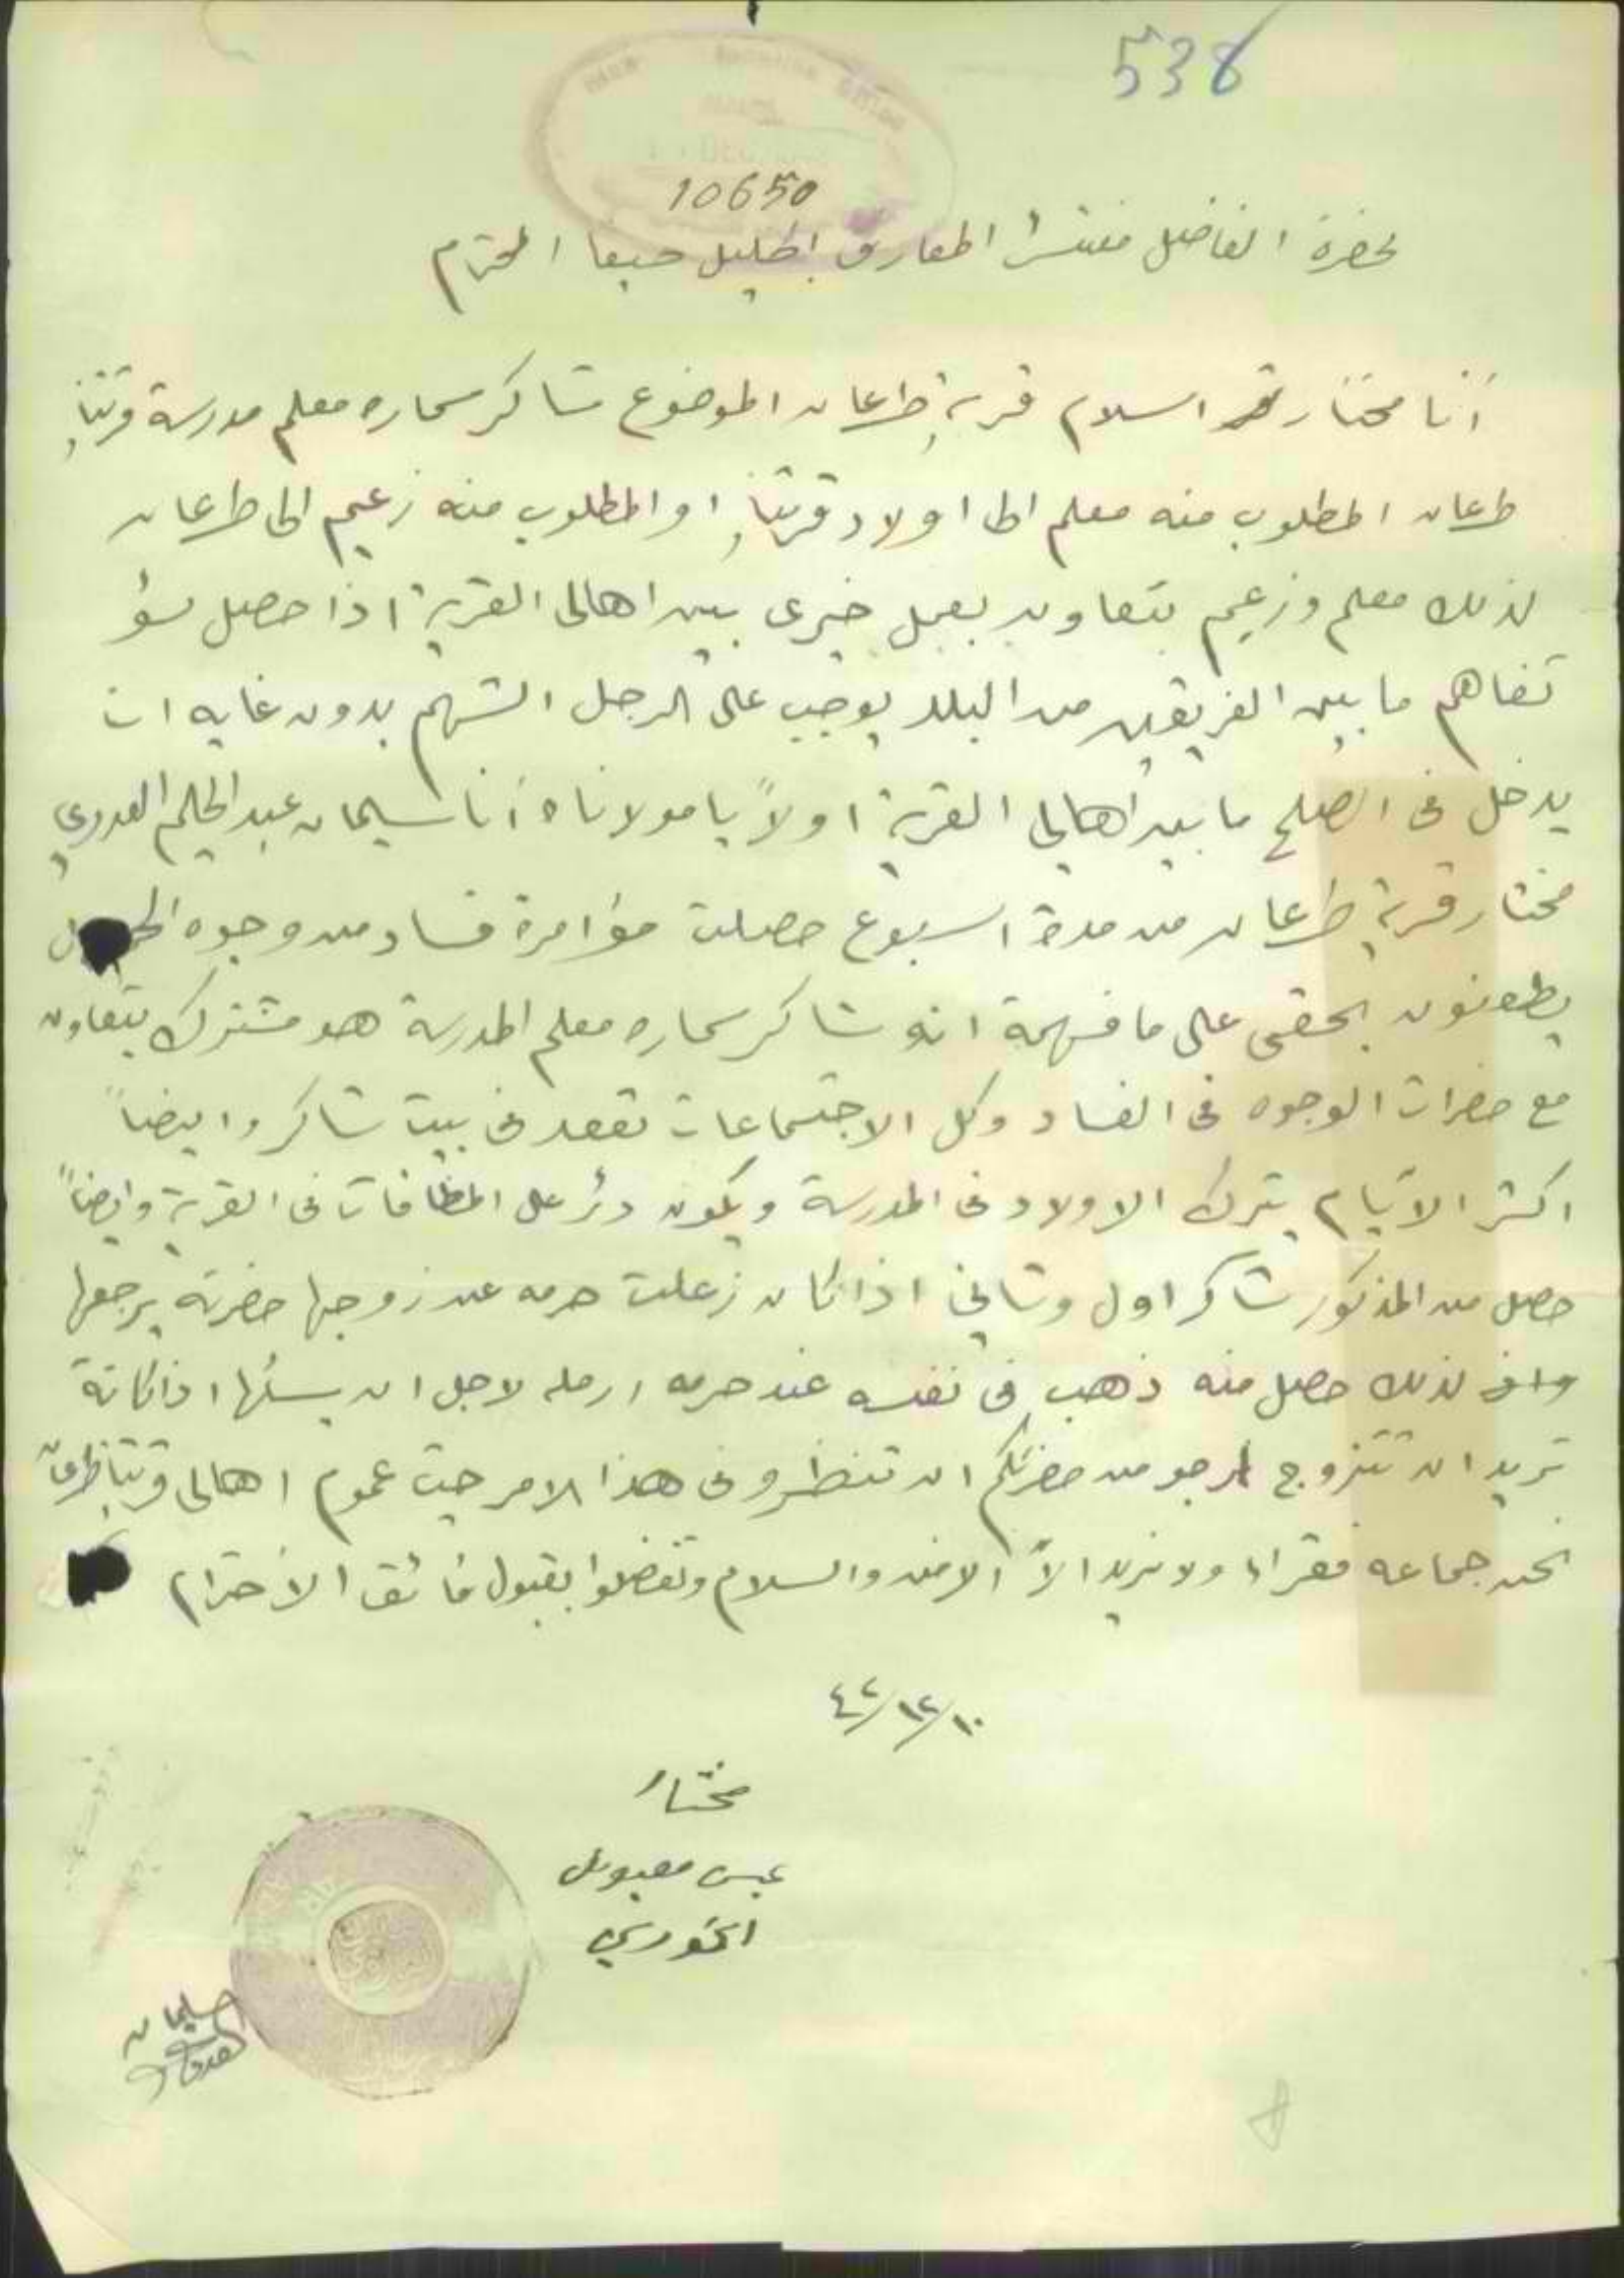 538
10650
لحضرة الفاضل مفتش المعارف الجليل حيفا المحترم
أنا مختار اسلام قرية طرعان الموضوع شاكر سماره معلم مدرسة قريتنا
طرعان المطلوب منه معلم الى اولاد قريتنا او المطلوب منه زعيم الى طرعان
لذلك معلم وزعيم بتعاون بعمل خيري بين اهالي القرية اذا حصل سؤ
تفاهم ما بين الفريقين من البلد يوجب على الرجل الشهم بدون غايه ان
يدخل في الصلح ما بين اهالي القرية اولاً يا مولاناه أنا سليمان عبد الحليم العدوي
مختار قرية طرعان من مدة اسبوع حصلت مؤامرة فساد من وجوه
يطعنون بحقي على ما فهمة انه شاكر سماره معلم المدرسة هو مشترك بتعاون
مع حضرات الوجوه في الفساد وكل الاجتماعات تقعد في بيت شاكر وايضاً
اكثر الأيام يترك الاولاد في المدرسة ويكون دئر على المظافات في القرية وايضاً
حصل من المذكور شاكر اول وثاني اذا كان زعلت حرمه عن زوجها حضرته يرجعها
لذلك حصل منه ذهب في نفسه عند حرمه ارمله لاجل ان يسئلها اذا كانة
تريد ان تتزوج ارجو من حضرتكم ان تنظرو في هذا الامر حيث عموم اهالي قريتنا طرعان
نحن جماعه فقراء ولا نريد الاّ الامن والسلام وتفضلوا بقبول فائق الأحترام
٤٢/١٢/١٠
مختار
الخوري
سليمان